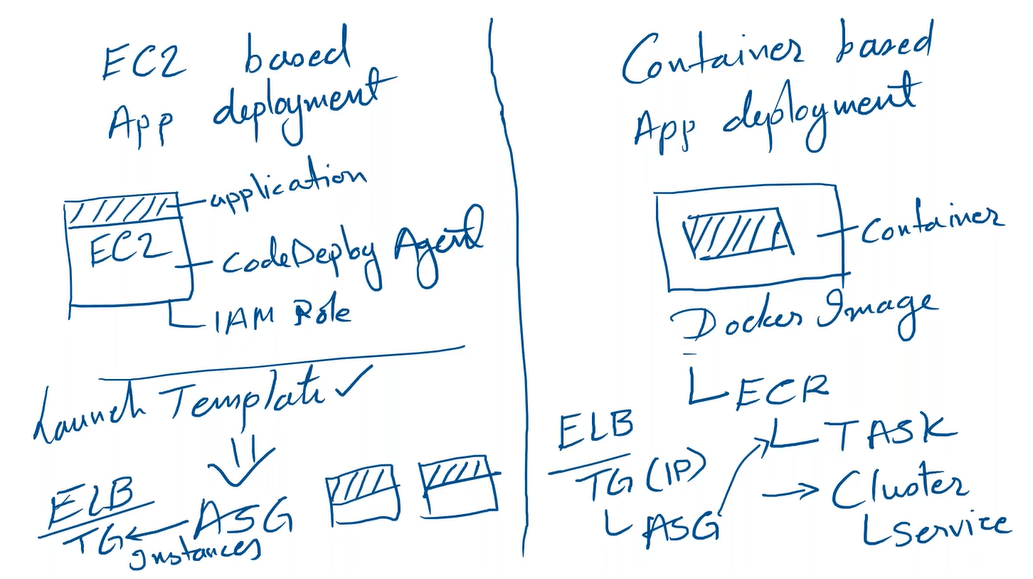 EC2 based
App deployment
application
EC2
CodeDeploy Agent
IAM Role
Launch Template ✓
ELB
TG
ASG
Instances
Container based
App deployment
Container
Docker Image
ECR
ELB
TASK
TG (IP)
Cluster
ASG
Service